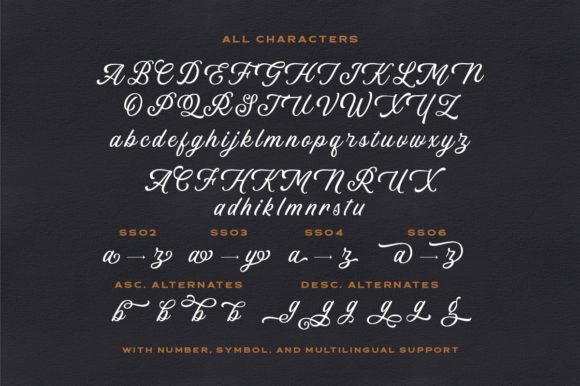 ALL CHARACTERS
A B C D E F G H I J K L M N
O P Q R S T U V W X Y Z
abcdefghijklmnopqrstuvwxyz
A C F H K M N R U X
adhiklmnrstu
SS02 SS03 SS04 SS06
a → z a → y a → z a → z
ASC. ALTERNATES DESC. ALTERNATES
b b b b g g g g g g
WITH NUMBER, SYMBOL, AND MULTILINGUAL SUPPORT